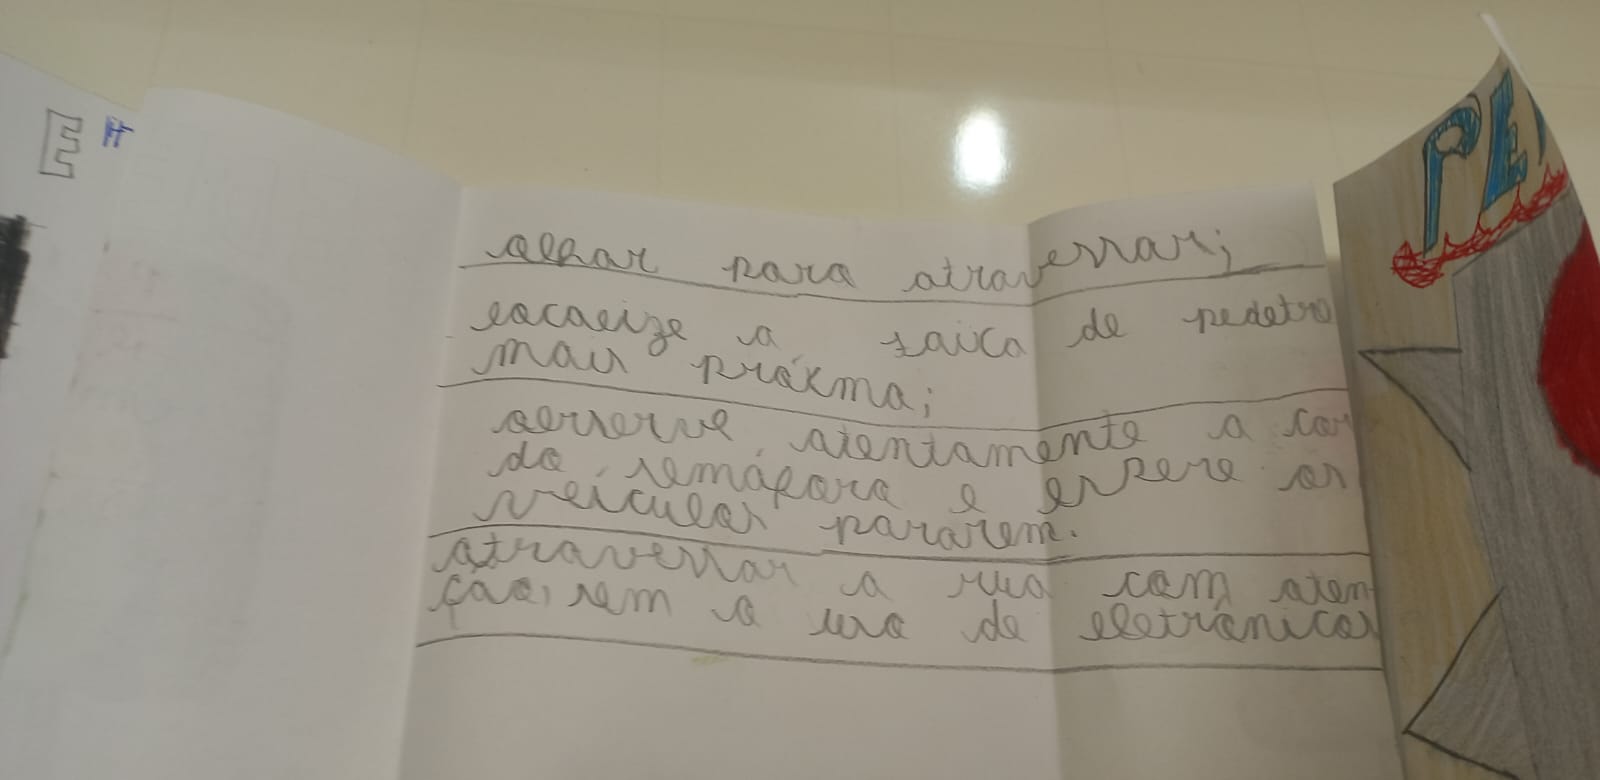 E
PE
olhar para atravessar;
localize a faixa de pedetre
mais próxma;
observe atentamente a cor
do semáforo e espere os
veículos pararem.
atravessar a rua com aten
ção, sem o uso de eletrônicos